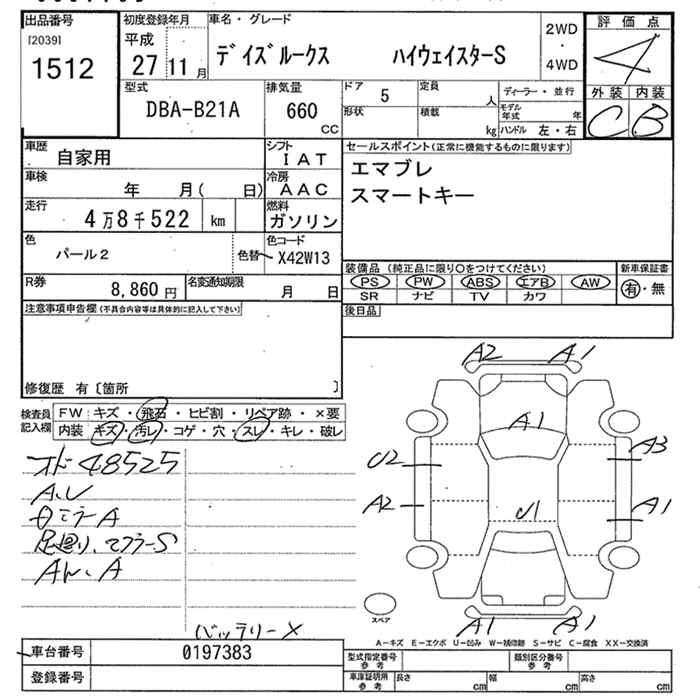 出品番号
[2039]
1512
初度登録年月
平成
27 11 月
車名・グレード
デイズルークス ハイウェイスターS
2WD
・
4WD
評価点
4
外装 内装
C B
型式
DBA-B21A
排気量
660
CC
ドア
5
形状
定員
人
積載
kg
ディーラー・並行
モデル年式 年
ハンドル 左・右
車歴
自家用
シフト
IAT
車検
年 月( 日)
冷房
AAC
走行
4万8千522 km
燃料
ガソリン
色
パール2
色替
色コード
X42W13
R券
8,860 円
名変通知期限
月 日
セールスポイント(正常に機能するものに限ります)
エマブレ
スマートキー
装備品 (純正品に限り○をつけてください)
PS PW ABS エアB AW
SR ナビ TV カワ
新車保証書
有・無
後日品
注意事項申告欄(不具合内容等は具体的に記入して下さい)
修復歴 有〔箇所 〕
検査員記入欄
FW キズ・飛石・ヒビ割・リペア跡・×要
内装 キズ・汚レ・コゲ・穴・スレ・キレ・破レ
オド48525
A、U
日ミラーA
足廻り、マフラーS
AW、A
バッテリーX
A2 A1
A1
U2 A3
A2 A1
U1
A1 A1
スペア
A−キズ E−エクボ U−凹み W−補修跡 S−サビ C−腐食 XX−交換済
車台番号 0197383
登録番号
型式指定番号参考
類別区分番号参考
車庫証明用参考
長さ cm
幅 cm
高さ cm